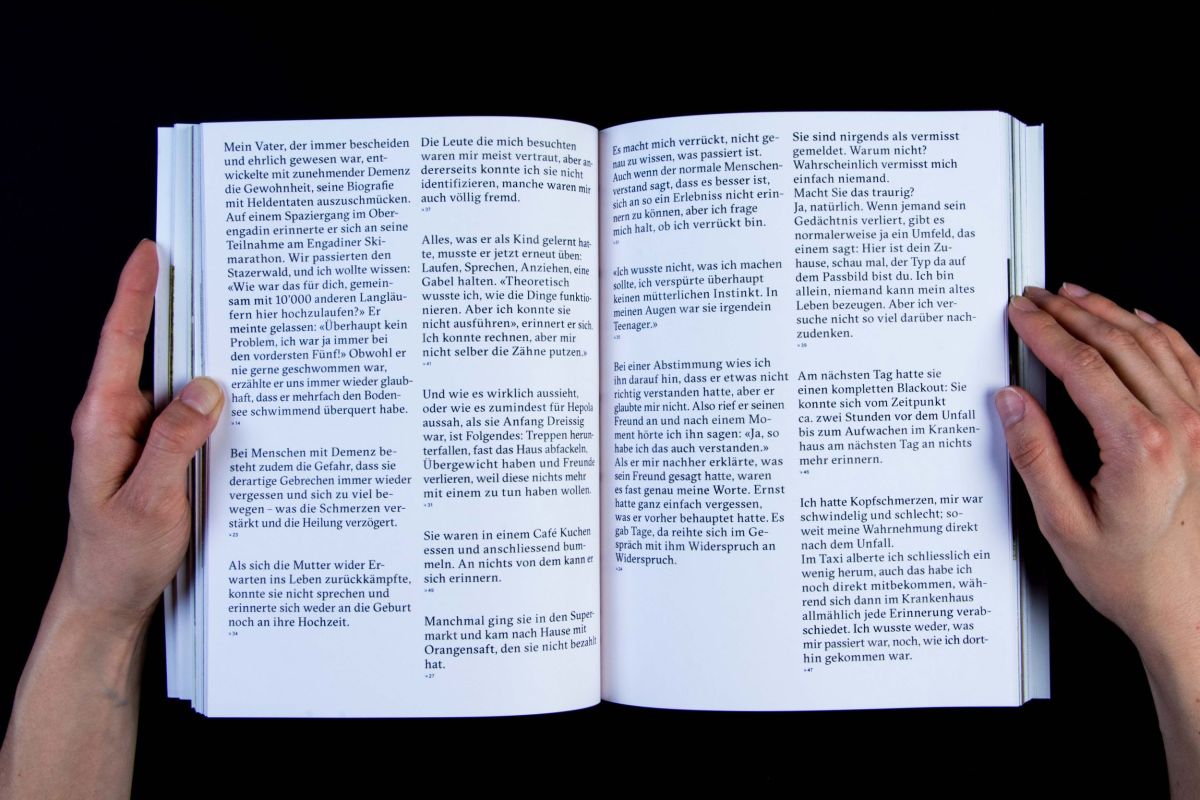 Mein Vater, der immer bescheiden
und ehrlich gewesen war, ent-
wickelte mit zunehmender Demenz
die Gewohnheit, seine Biografie
mit Heldentaten auszuschmücken.
Auf einem Spaziergang im Ober-
engadin erinnerte er sich an seine
Teilnahme am Engadiner Ski-
marathon. Wir passierten den
Stazerwald, und ich wollte wissen:
«Wie war das für dich, gemein-
sam mit 10'000 anderen Langläu-
fern hier hochzulaufen?» Er
meinte gelassen: «Überhaupt kein
Problem, ich war ja immer bei
den vordersten Fünf!» Obwohl er
nie gerne geschwommen war,
erzählte er uns immer wieder glaub-
haft, dass er mehrfach den Boden-
see schwimmend überquert habe.
»14
Bei Menschen mit Demenz be-
steht zudem die Gefahr, dass sie
derartige Gebrechen immer wieder
vergessen und sich zu viel be-
wegen – was die Schmerzen ver-
stärkt und die Heilung verzögert.
»23
Als sich die Mutter wider Er-
warten ins Leben zurückkämpfte,
konnte sie nicht sprechen und
erinnerte sich weder an die Geburt
noch an ihre Hochzeit.
»34
Die Leute die mich besuchten
waren mir meist vertraut, aber an-
dererseits konnte ich sie nicht
identifizieren, manche waren mir
auch völlig fremd.
»37
Alles, was er als Kind gelernt hat-
te, musste er jetzt erneut üben:
Laufen, Sprechen, Anziehen, eine
Gabel halten. «Theoretisch
wusste ich, wie die Dinge funktio-
nieren. Aber ich konnte sie
nicht ausführen», erinnert er sich.
Ich konnte rechnen, aber mir
nicht selber die Zähne putzen.»
»41
Und wie es wirklich aussieht,
oder wie es zumindest für Hepola
aussah, als sie Anfang Dreissig
war, ist Folgendes: Treppen herun-
terfallen, fast das Haus abfackeln,
Übergewicht haben und Freunde
verlieren, weil diese nichts mehr
mit einem zu tun haben wollen.
»31
Sie waren in einem Café Kuchen
essen und anschliessend bum-
meln. An nichts von dem kann er
sich erinnern.
»49
Manchmal ging sie in den Super-
markt und kam nach Hause mit
Orangensaft, den sie nicht bezahlt
hat.
»27
Es macht mich verrückt, nicht ge-
nau zu wissen, was passiert ist.
Auch wenn der normale Menschen-
verstand sagt, dass es besser ist,
sich an so ein Erlebniss nicht erin-
nern zu können, aber ich frage
mich halt, ob ich verrückt bin.
«Ich wusste nicht, was ich machen
sollte, ich verspürte überhaupt
keinen mütterlichen Instinkt. In
meinen Augen war sie irgendein
Teenager.»
Bei einer Abstimmung wies ich
ihn darauf hin, dass er etwas nicht
richtig verstanden hatte, aber er
glaubte mir nicht. Also rief er seinen
Freund an und nach einem Mo-
ment hörte ich ihn sagen: «Ja, so
habe ich das auch verstanden.»
Als er mir nachher erklärte, was
sein Freund gesagt hatte, waren
es fast genau meine Worte. Ernst
hatte ganz einfach vergessen,
was er vorher behauptet hatte. Es
gab Tage, da reihte sich im Ge-
spräch mit ihm Widerspruch an
Widerspruch.
»24
Sie sind nirgends als vermisst
gemeldet. Warum nicht?
Wahrscheinlich vermisst mich
einfach niemand.
Macht Sie das traurig?
Ja, natürlich. Wenn jemand sein
Gedächtnis verliert, gibt es
normalerweise ja ein Umfeld, das
einem sagt: Hier ist dein Zu-
hause, schau mal, der Typ da auf
dem Passbild bist du. Ich bin
allein, niemand kann mein altes
Leben bezeugen. Aber ich ver-
suche nicht so viel darüber nach-
zudenken.
»39
Am nächsten Tag hatte sie
einen kompletten Blackout: Sie
konnte sich vom Zeitpunkt
ca. zwei Stunden vor dem Unfall
bis zum Aufwachen im Kranken-
haus am nächsten Tag an nichts
mehr erinnern.
»45
Ich hatte Kopfschmerzen, mir war
schwindelig und schlecht; so-
weit meine Wahrnehmung direkt
nach dem Unfall.
Im Taxi alberte ich schliesslich ein
wenig herum, auch das habe ich
noch direkt mitbekommen, wäh-
rend sich dann im Krankenhaus
allmählich jede Erinnerung verab-
schiedet. Ich wusste weder, was
mir passiert war, noch, wie ich dort-
hin gekommen war.
»47